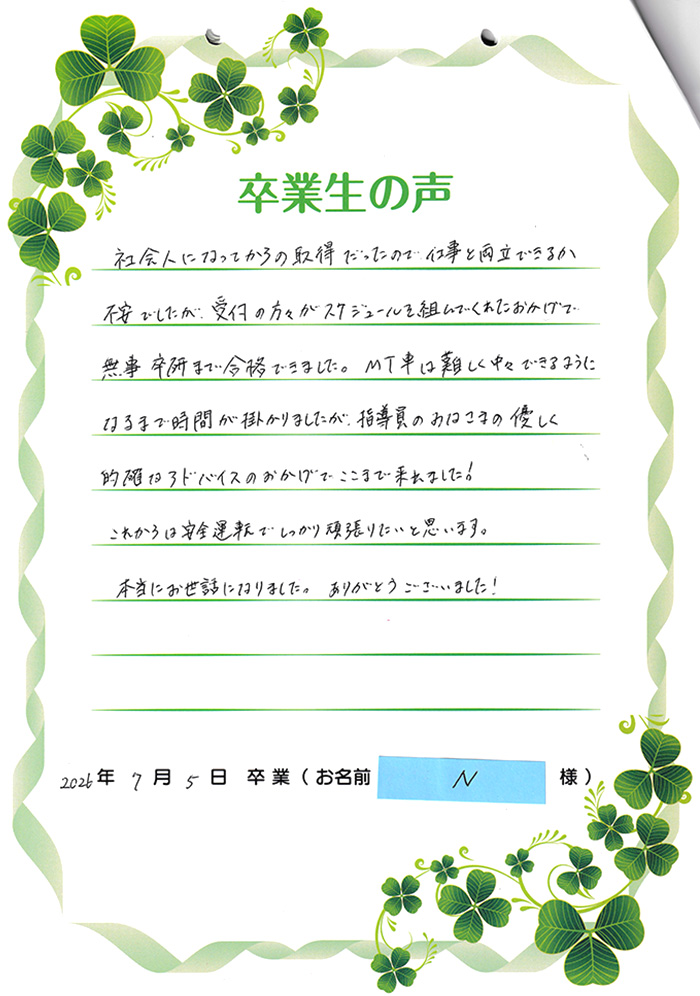 卒業生の声
社会人になってからの取得だったので仕事と両立できるか
不安でしたが、受付の方々がスケジュールを組んでくれたおかげで
無事卒研まで合格できました。MT車は難しく中々できるように
なるまで時間が掛かりましたが、指導員のみなさまの優しく
的確なアドバイスのおかげでここまで来れました!
これからは安全運転でしっかり頑張りたいと思います。
本当にお世話になりました。ありがとうございました!
2026年 7月 5日 卒業(お名前 N 様)